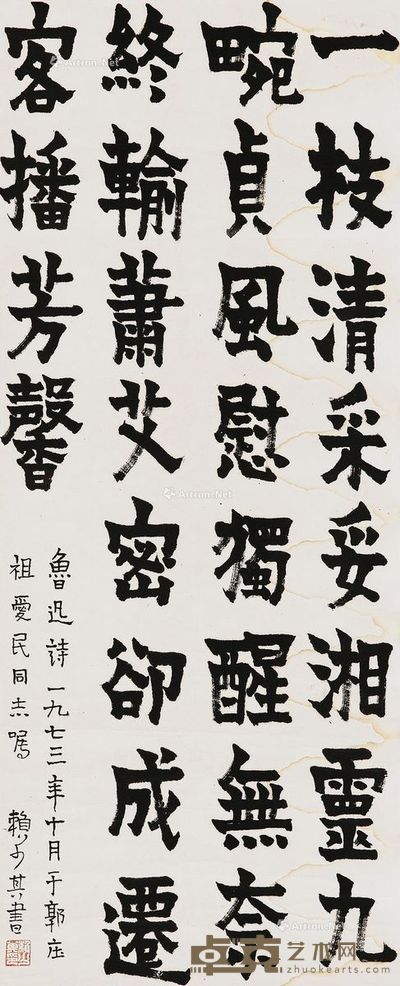 一枝清采妥湘靈九
畹貞風慰獨醒無奈
終輸蕭艾密卻成遷
客播芳馨
魯迅詩一九七三年十月于郭庄
祖愛民同志嘱
賴少其書
Artron.Net
Artron.Net
Artron.Net
Artron.Net
卓克艺术网
www.zhuokearts.com